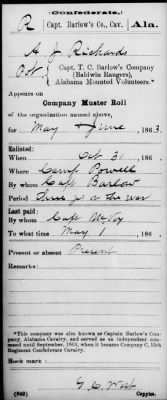 (Confederate.)
R Capt. Barlow's Co., Cav. Ala.
A J Richards
Pvt. Capt. T. C. Barlow's Company
(Baldwin Rangers),
Alabama Mounted Volunteers.*
Appears on
Company Muster Roll
of the organization named above,
for May & June, 1863.
Enlisted:
When Oct 31, 186 .
Where Camp Powell
By whom Capt Barlow
Period three yrs or the war
Last paid:
By whom Capt McVoy
To what time May 1, 186 .
Present or absent Present
Remarks:
*This company was also known as Captain Barlow's Company, Alabama Cavalry, and served as an independent command until September, 1863, when it became Company C, 15th Regiment Confederate Cavalry.
Book mark:
(642) Copyist.